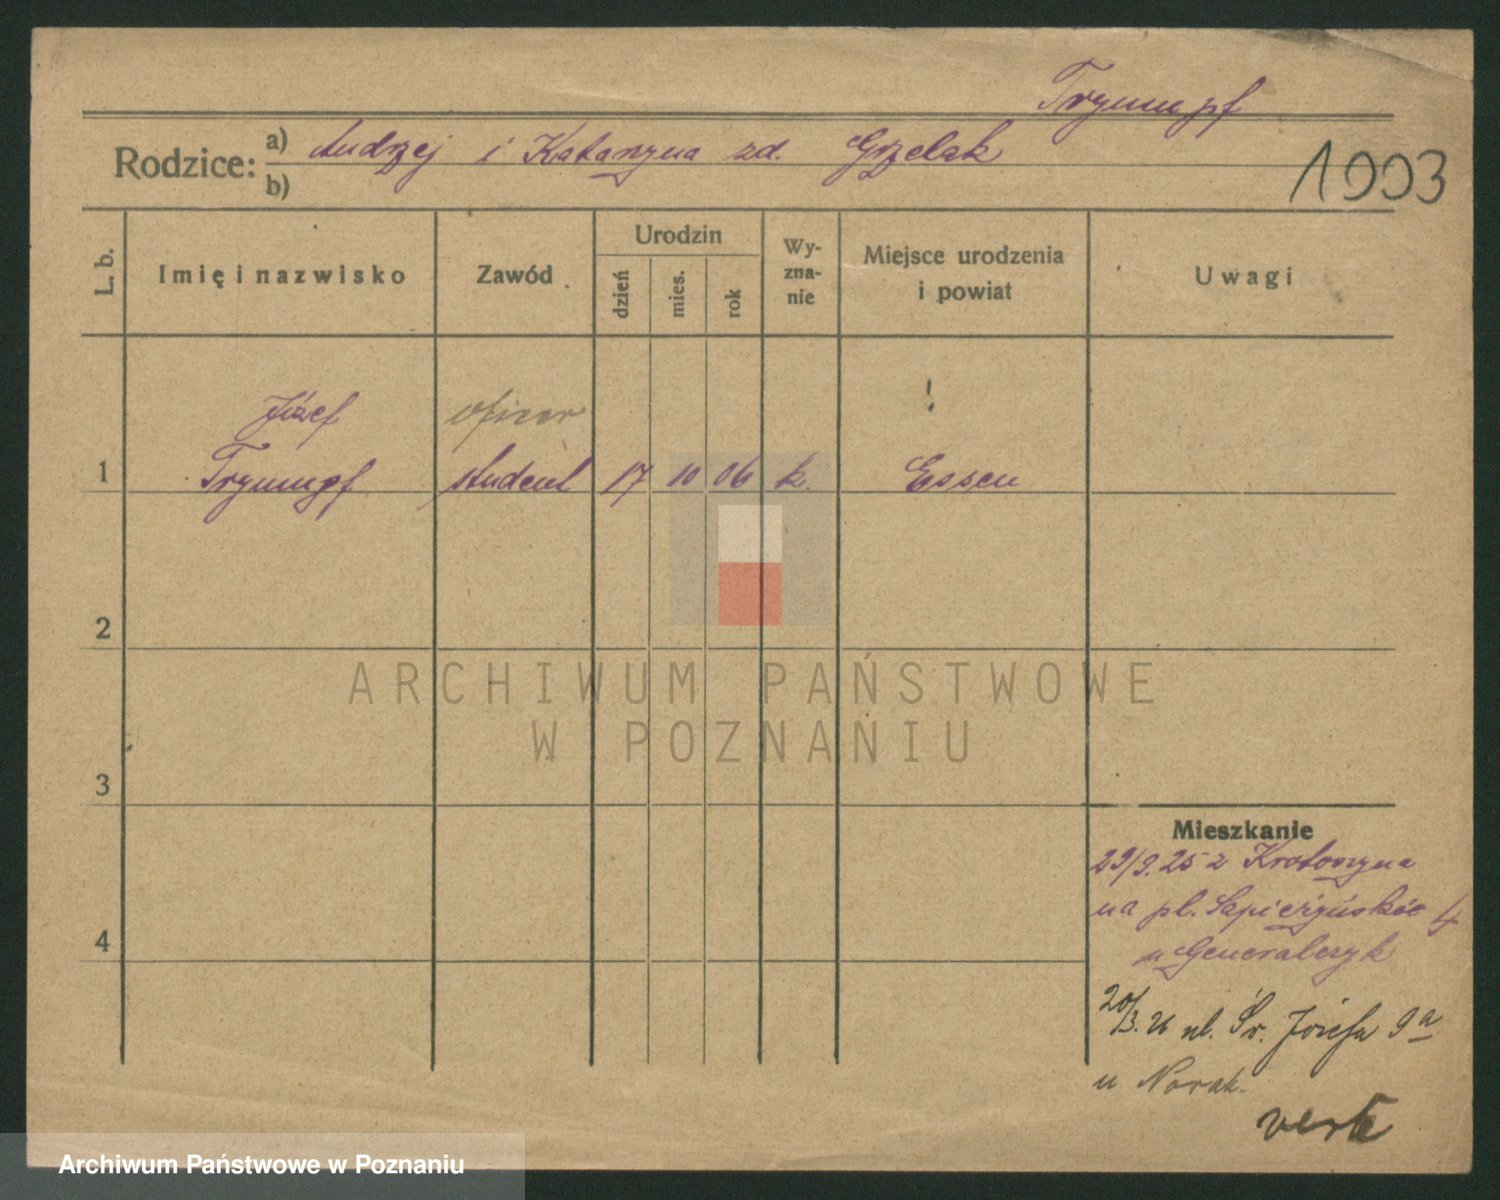 Trymumpf
Rodzice: a) Andrzej i Katarzyna zd. Grzelak
b)
1903
L. b.
Imię i nazwisko
Zawód
Urodzin
dzień
mies.
rok
Wy-
zna-
nie
Miejsce urodzenia
i powiat
Uwagi
Józef oficer !
1 Trymumpf student 17 10 06 k. Essen
2
ARCHIWUM PAŃSTWOWE
W POZNANIU
3
Mieszkanie
29/9. 25 z Krotoszyna
na pl. Sapieżyńskie 4
4
u Generalczyk
20/3. 26 ul. Św. Józefa 9a
u Nowak.
Archiwum Państwowe w Poznaniu